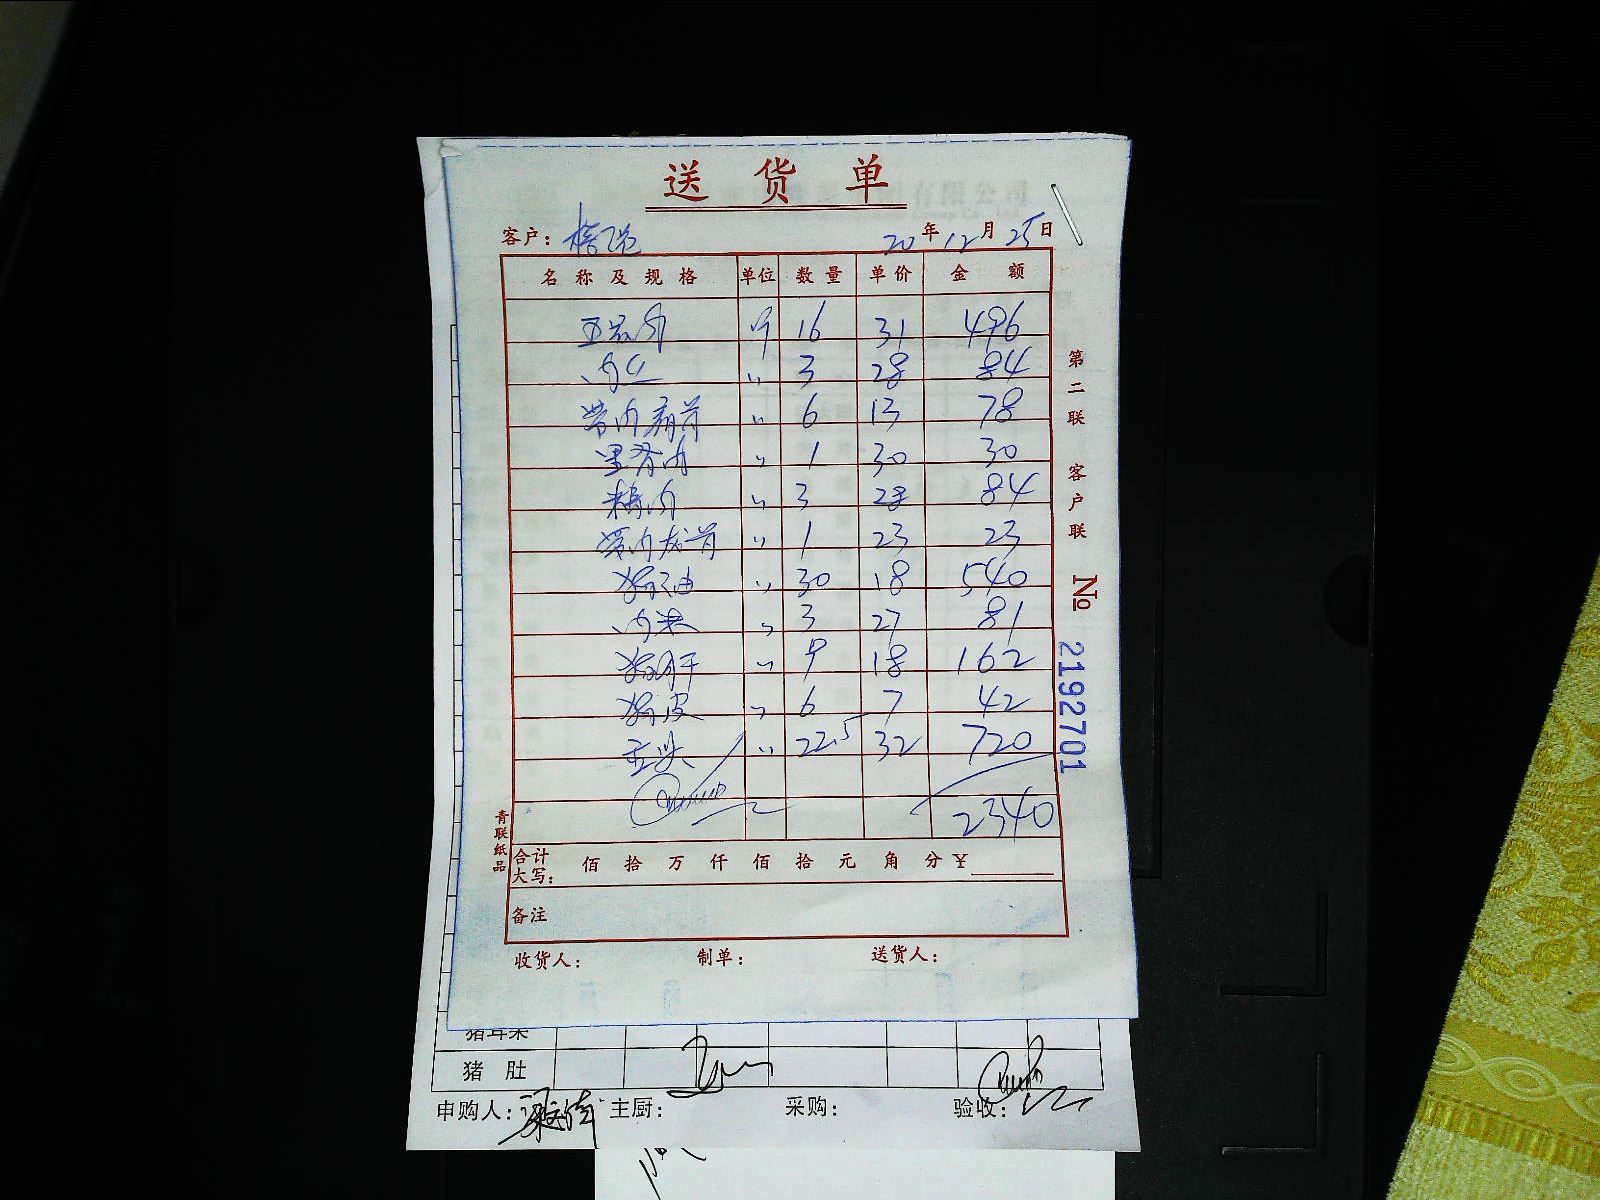 送货单
客户： 20年12月25日
名称及规格 单位 数量 单价 金额
五花肉 斤 16 31 496
肉 〃 3 28 84
带肉扇骨 〃 6 13 78
里脊肉 〃 1 30 30
精肉 〃 3 28 84
带肉龙骨 〃 1 23 23
猪油 〃 30 18 540
肉 〃 3 27 81
猪肝 〃 9 18 162
猪皮 〃 6 7 42
〃 22.5 32 720
2340
合计大写： 佰 拾 万 仟 佰 拾 元 角 分 ¥
备注
收货人： 制单： 送货人：
第二联 客户联 № 2192701
青联纸品
猪耳朵
猪肚
申购人： 主厨： 采购： 验收：